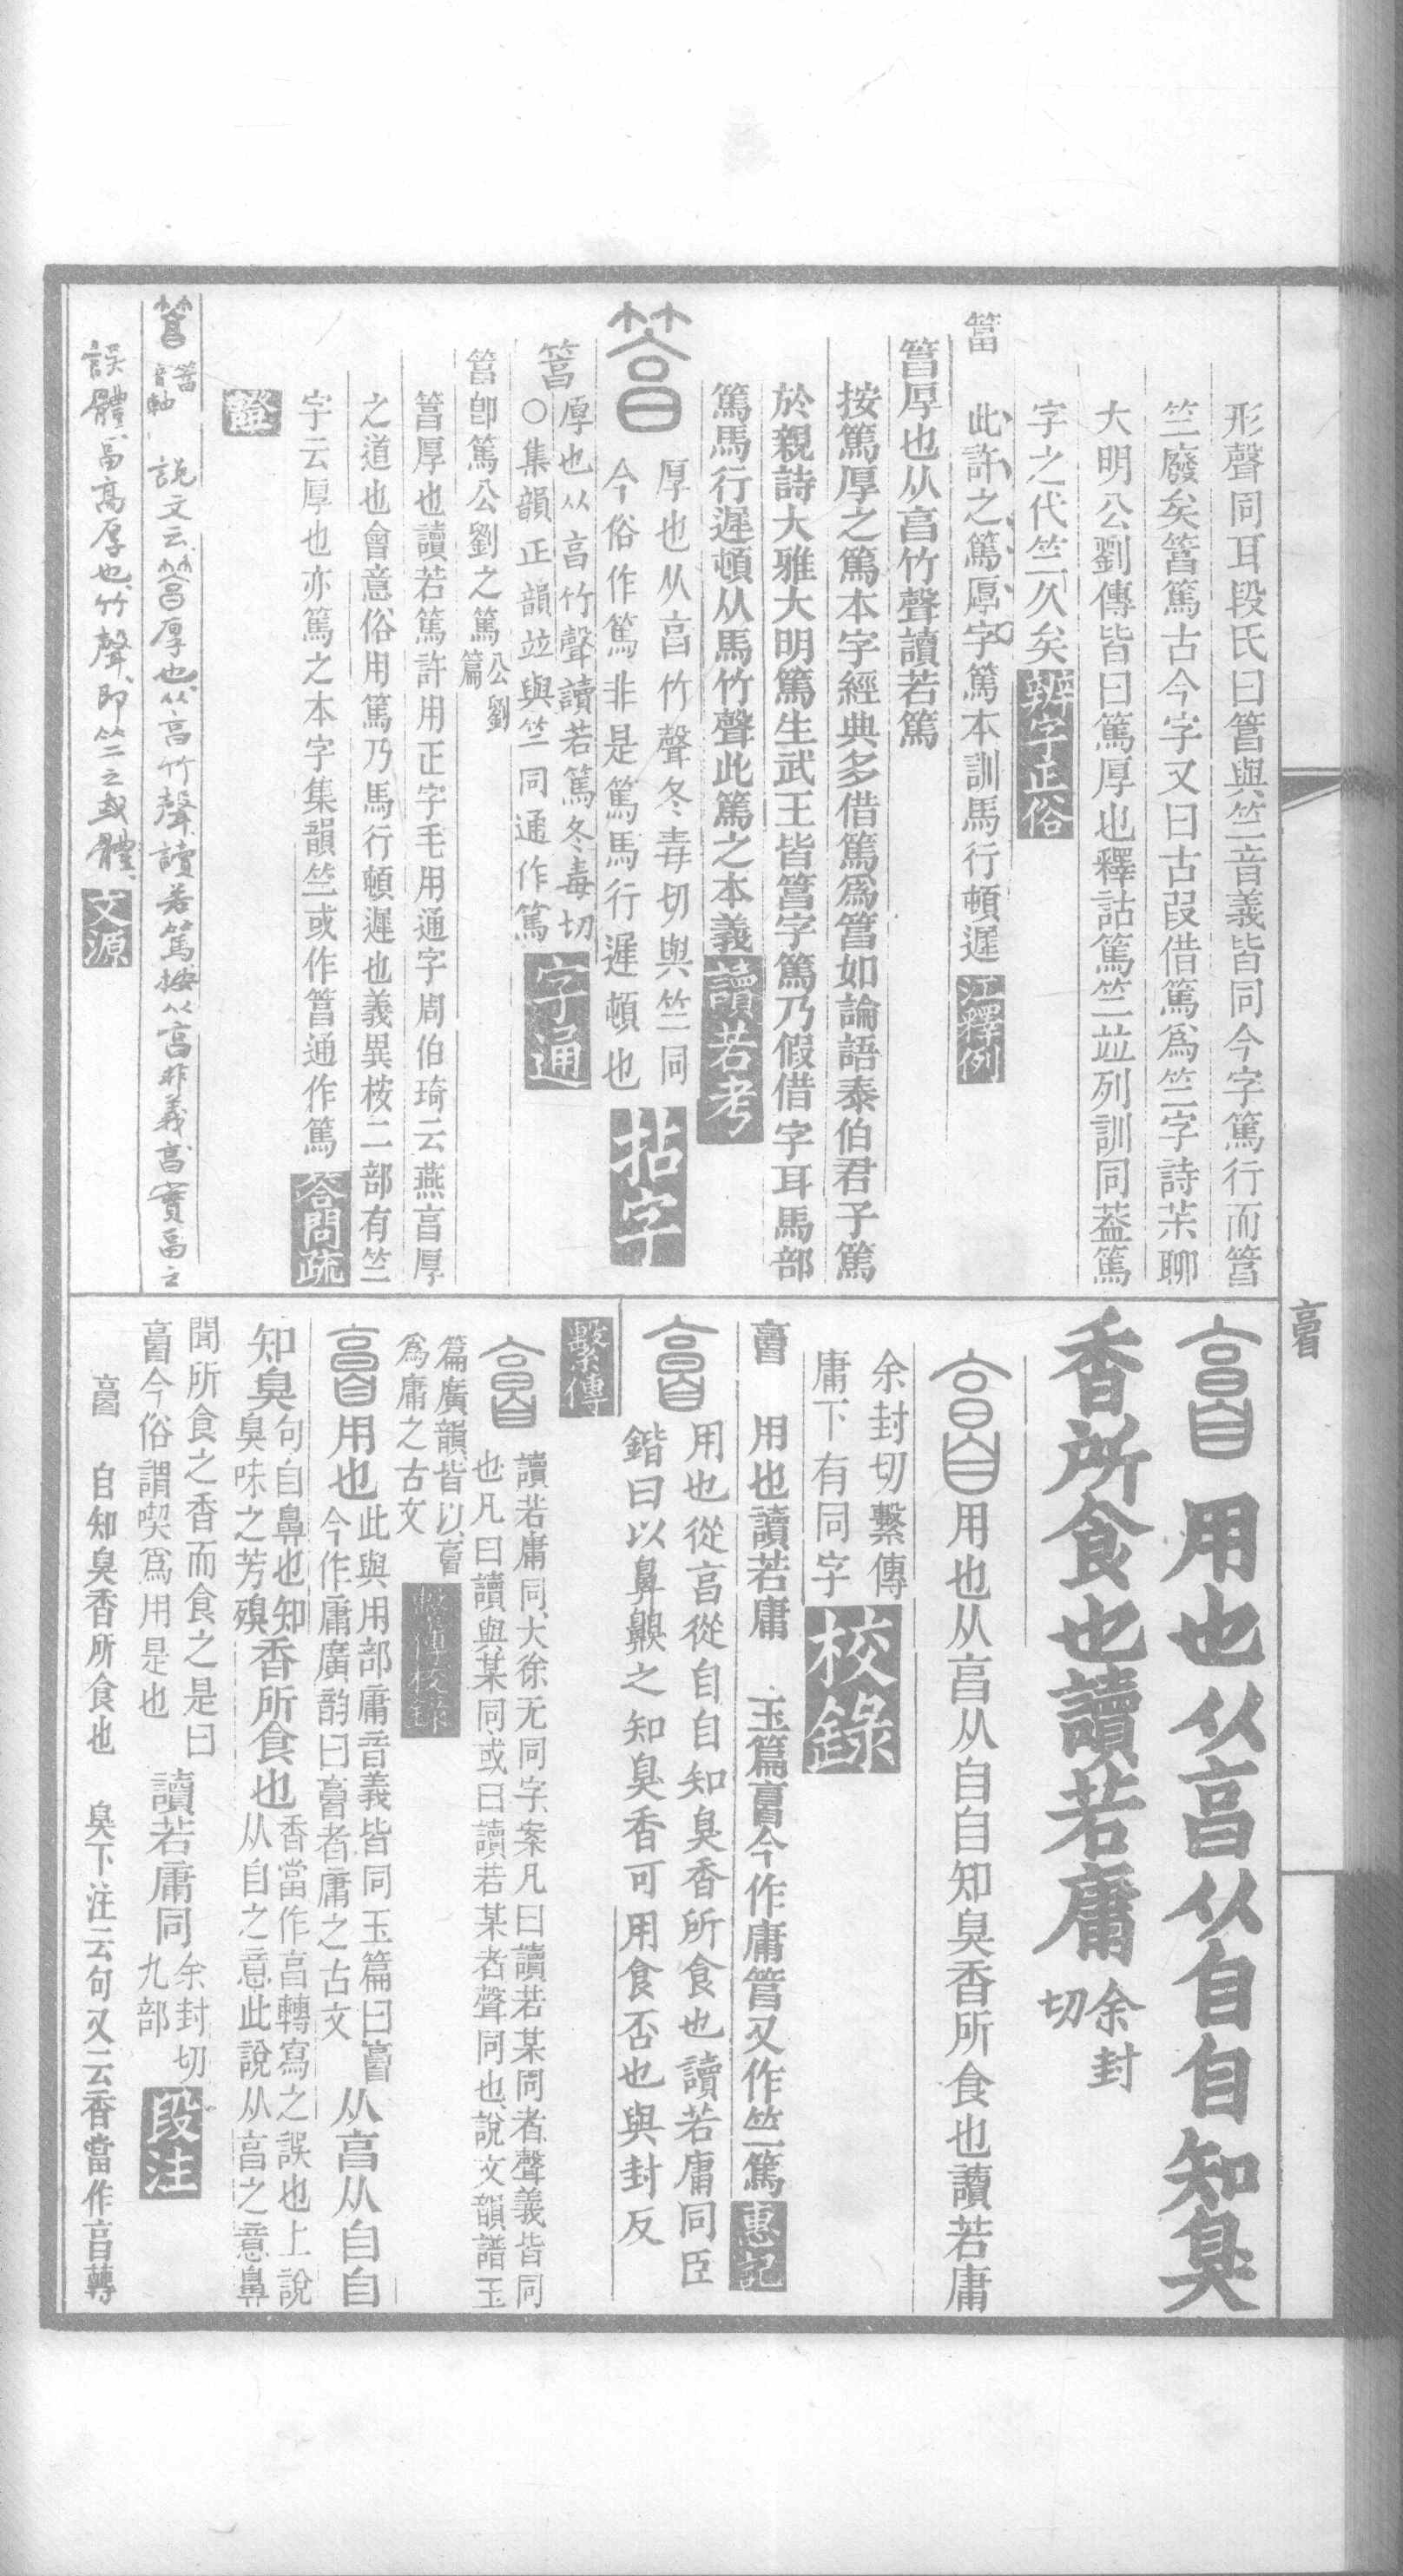 形聲同耳段氏曰䈞與竺音義皆同今字篤行而䈞
竺廢矣䈞篤古今字又曰古叚借篤爲竺字詩茮聊
大明公劉傳皆曰篤厚也釋詁篤竺竝列訓同葢篤
字之代竺久矣 辨字正俗
䈞 此許之篤厚字篤本訓馬行頓遲 江釋例
䈞厚也从亯竹聲讀若篤
按篤厚之篤本字經典多借篤爲䈞如論語泰伯君子篤
於親詩大雅大明篤生武王皆䈞字篤乃假借字耳馬部
篤馬行遲頓从馬竹聲此篤之本義 讀若考
䈞 厚也从亯竹聲冬毒切與竺同
今俗作篤非是篤馬行遲頓也 拈字
䈞 厚也从亯竹聲讀若篤冬毒切
○集韻正韻竝與竺同通作篤 字通
䈞卽篤公劉之篤 公劉篇
䈞厚也讀若篤許用正字毛用通字周伯琦云燕亯厚
之道也會意俗用篤乃馬行頓遲也義異桉二部有竺
字云厚也亦篤之本字集韻竺或作䈞通作篤 答問疏
證
䈞 䈞音軸 說文云䈞厚也从亯竹聲讀若篤按从亯非義亯實畐之
誤體畐高厚也竹聲即竺之或體 文源
𣆟
𣆟 用也从亯从自自知臭
香所食也讀若庸 余封切
𣆟 用也从亯从自自知臭香所食也讀若庸
余封切繫傳
庸下有同字 校錄
𣆟 用也讀若庸 玉篇𣆟今作庸䈞又作竺篤 惠記
𣆟 用也從亯從自自知臭香所食也讀若庸同臣
鍇曰以鼻齅之知臭香可用食否也與封反
繫傳
𣆟 讀若庸同大徐无同字案凡曰讀若某同者聲義皆同
也凡曰讀與某同或曰讀若某者聲同也說文韻譜玉
篇廣韻皆以𣆟
爲庸之古文 繫傳校錄
𣆟 用也 此與用部庸音義皆同玉篇曰𣆟
今作庸廣韵曰𣆟者庸之古文 从亯从自自
知臭 句自鼻也知
臭味之芳殠 香所食也 香當作亯轉寫之誤也上說
从自之意此說从亯之意鼻
聞所食之香而食之是曰
𣆟今俗謂喫爲用是也 讀若庸同 余封切
九部 段注
𣆟 自知臭香所食也 臭下注云句又云香當作亯轉